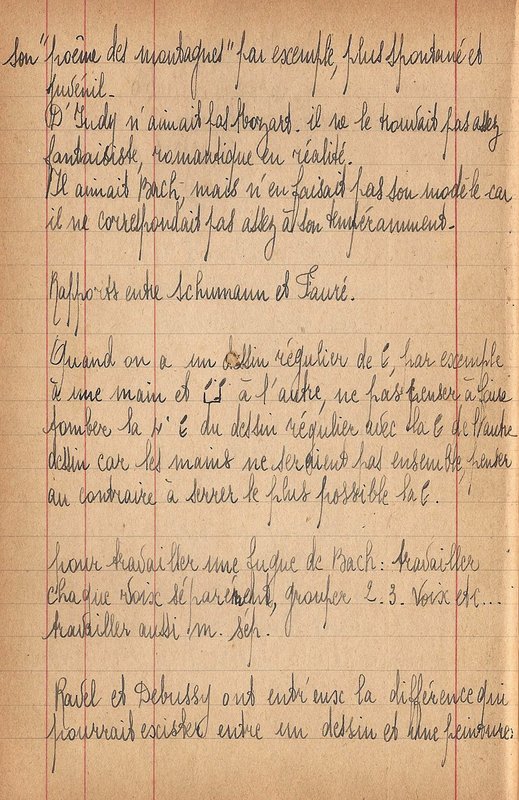 son "poême des montagnes" par exemple, plus spontané et
juvénil.
D'Indy n'aimait pas Mozart. il ne le trouvait pas assez
fantaisiste, romantique en réalité.
Il aimait Bach, mais n'en faisait pas son modèle car
il ne correspondait pas assez à son tempéramment.
Rapports entre Schumann et Fauré.
Quand on a un dessin régulier de , par exemple
à une main et à l'autre, ne pas penser à faire
tomber la 4e du dessin régulier avec la de l'autre
dessin car les mains ne seraient pas ensemble, penser
au contraire à serrer le plus possible la .
pour travailler une fugue de Bach: travailler
chaque voix séparément, grouper 2. 3. voix etc...
travailler aussi m. sép.
Ravel et Debussy ont entr'eux la différence qui
pourrait exister entre un dessin et une peinture.